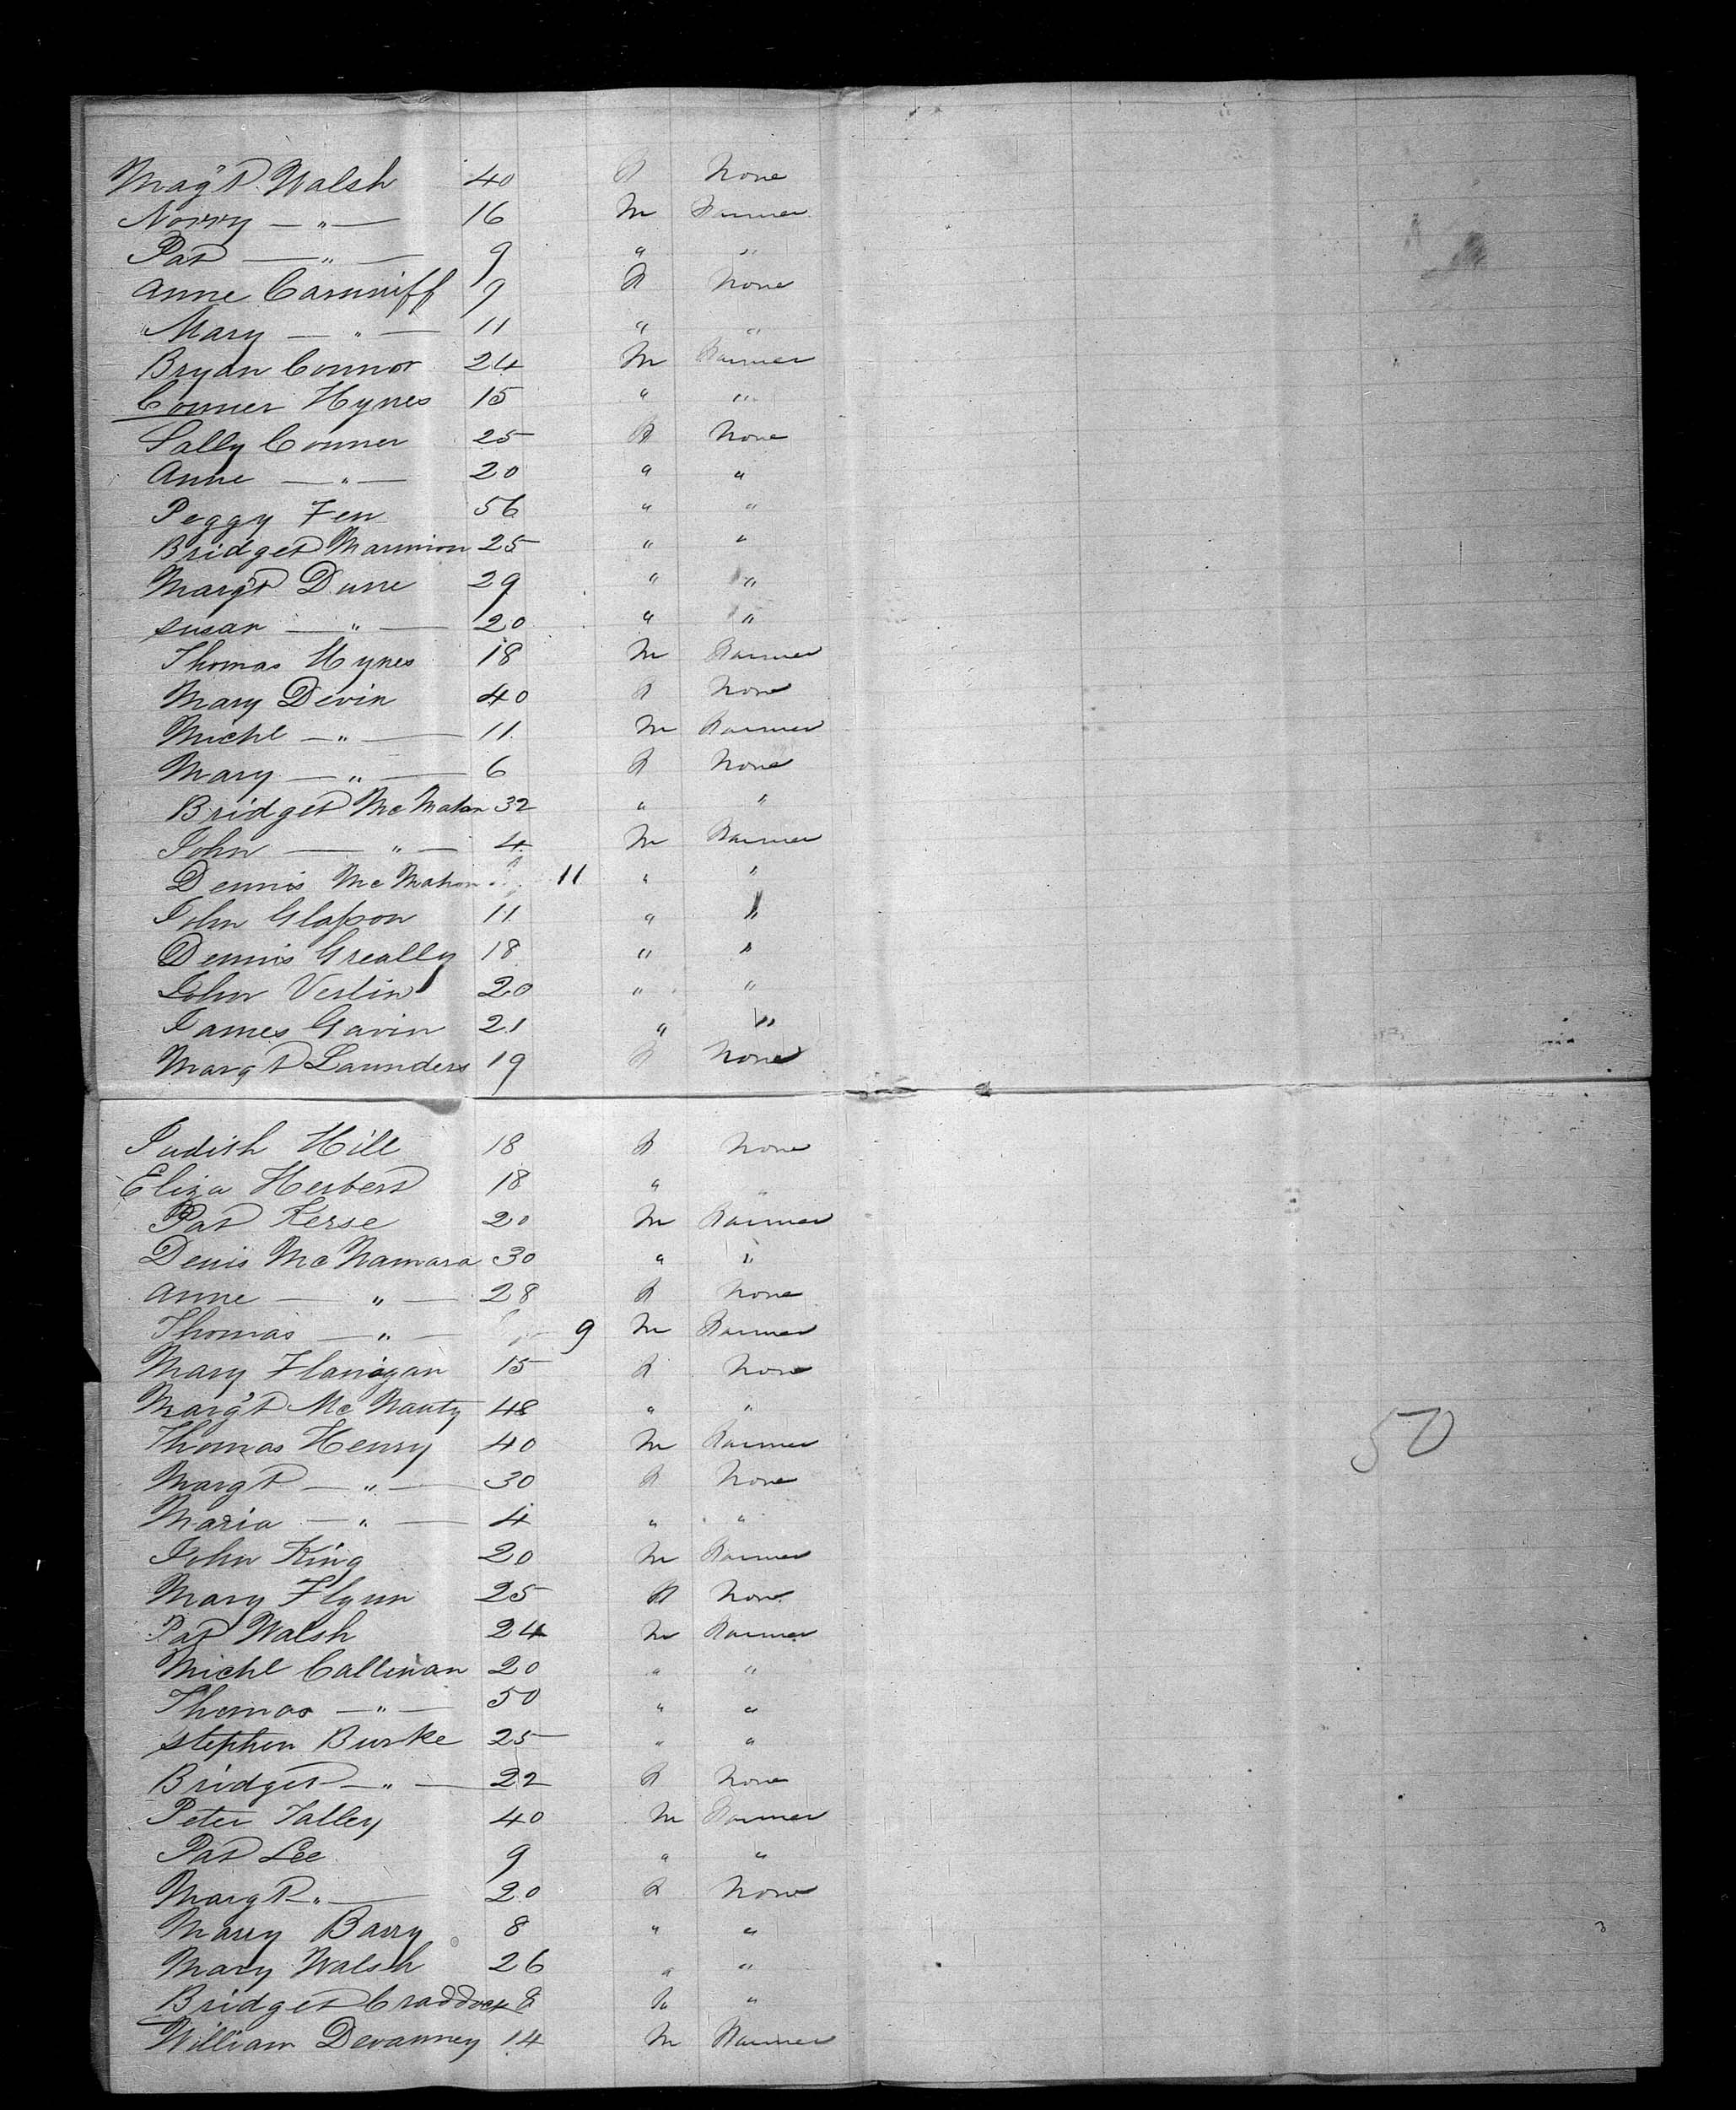 Mag't Walsh 40 F None
Norry — " — 16 M Farmer
Pat — " — 9 " "
Anne Canniff 9 F None
Mary — " — 11 " "
Bryan Connor 24 M Farmer
Conner Hynes 15 " "
Sally Conner 25 F None
Anne — " — 20 " "
Peggy Fen 56 " "
Bridget Mannion 25 " "
Marg't Dunne 29 " "
Susan — " — 20 " "
Thomas Hynes 18 M Farmer
Mary Devin 40 F None
Michl — " — 11 M Farmer
Mary — " — 6 F None
Bridget McMahon 32 " "
John — " — 4 M Farmer
Dennis McMahon 11 " "
John Glasson 11 " "
Dennis Greally 18 " "
John Veslin 20 " "
James Gavin 21 " "
Margt Saunders 19 F None
Judith Hill 18 F None
Eliza Herbert 18 " "
Pat Kerse 20 M Farmer
Denis McNamara 30 " "
Anne — " — 28 F None
Thomas — " — 9 M Farmer
Mary Flanigan 15 F None
Marg't McNauty 48 " "
Thomas Henry 40 M Farmer
Margt — " — 30 F None
Maria — " — 4 " "
John King 20 M Farmer
Mary Flynn 25 F None
Pat Walsh 24 M Farmer
Michl Callinan 20 " "
Thomas — " — 50 " "
Stephen Burke 25 " "
Bridget — " — 22 F None
Peter Talley 40 M Farmer
Pat Lee 9 " "
Margt — " — 20 F None
Mary Barry 8 " "
Mary Walsh 26 " "
Bridget Craddock 8 F "
William Devanney 14 M Farmer
50